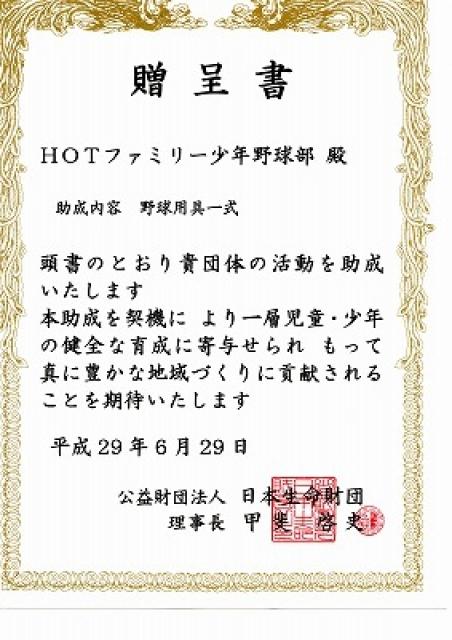 贈呈書
HOTファミリー少年野球部 殿
助成内容 野球用具一式
頭書のとおり貴団体の活動を助成
いたします
本助成を契機に より一層児童・少年
の健全な育成に寄与せられ もって
真に豊かな地域づくりに貢献される
ことを期待いたします
平成29年6月29日
公益財団法人 日本生命財団
理事長 甲斐 啓史